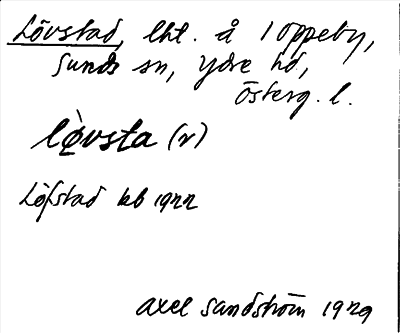 Lövstad, lht. å 1 Oppeby,
Sunds sn, Ydre hd,
Österg. l.
lò̤vsta (r)
Löfstad kb 1922
Axel Sandström 1929